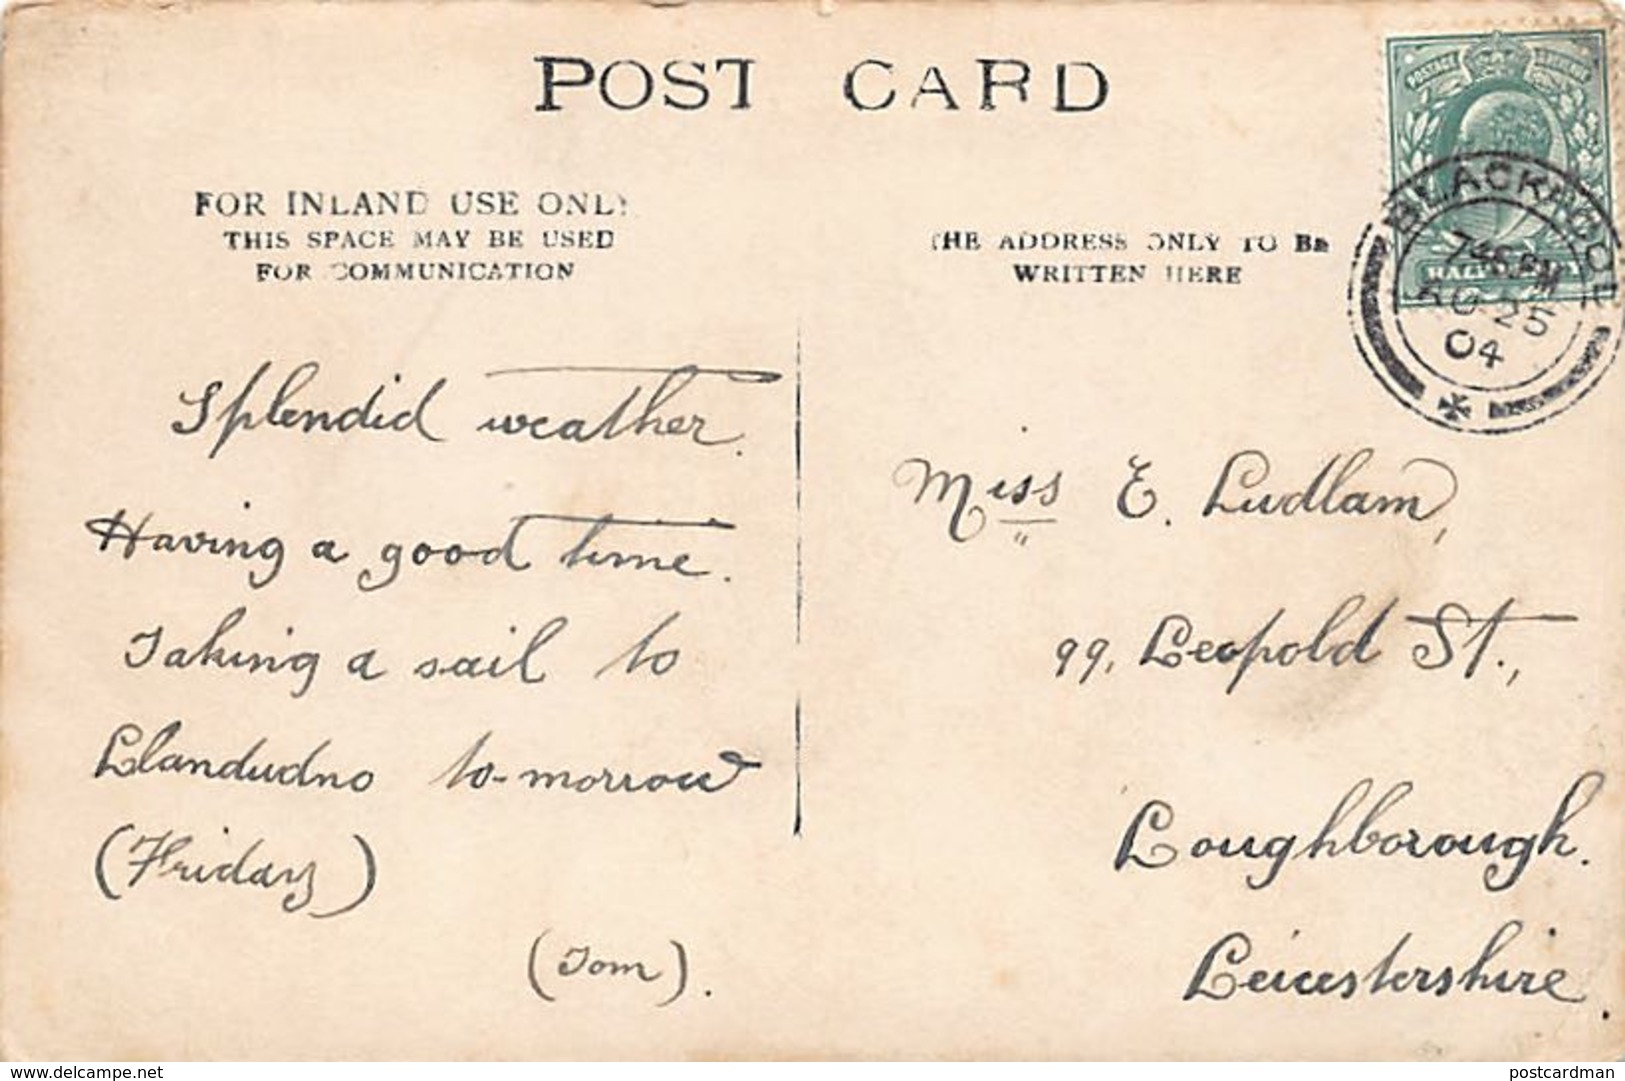 POST CARD
FOR INLAND USE ONLY
THIS SPACE MAY BE USED
FOR COMMUNICATION
THE ADDRESS ONLY TO BE
WRITTEN HERE
POSTAGE REVENUE
HALFPENNY
BLACKPOOL
7 45 PM
AU 25
04
Splendid weather.
Having a good time.
Taking a sail to
Llandudno to-morrow
(Friday)
(Tom).
Miss E. Ludlam,
99, Leopold St.,
Loughborough.
Leicestershire.
www.delcampe.net
postcardman